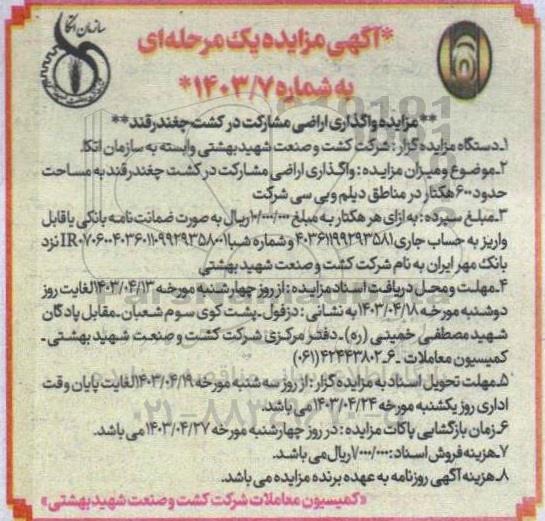 سازمان اتکا
*آگهی مزایده یک مرحله‌ای
به شماره ۱۴۰۳/۷*
**مزایده واگذاری اراضی مشارکت در کشت چغندر قند**
۱ـ دستگاه مزایده گزار : شرکت کشت و صنعت شهید بهشتی وابسته به سازمان اتکا.
۲ـ موضوع و میزان مزایده : واگذاری اراضی مشارکت در کشت چغندر قند به مساحت
حدود ۶۰۰ هکتار در مناطق دیلم و بی سی شرکت
۳ـ مبلغ سپرده : به ازای هر هکتار به مبلغ ۱۰/۰۰۰/۰۰۰ ریال به صورت ضمانت نامه بانکی یا قابل
واریز به حساب جاری ۴۰۳۶۱۱۹۹۲۹۳۵۸۱ و شماره شبا IR۰۷۰۶۰۰۴۰۳۶۰۱۱۰۹۹۲۹۳۵۸۰۰۱ نزد
بانک مهر ایران به نام شرکت کشت و صنعت شهید بهشتی
۴ـ مهلت و محل دریافت اسناد مزایده : از روز چهارشنبه مورخه ۱۴۰۳/۰۴/۱۳ لغایت روز
دوشنبه مورخه ۱۴۰۳/۰۴/۱۸ به نشانی : دزفول ـ پشت کوی سوم شعبان ـ مقابل پادگان
شهید مصطفی خمینی (ره) ـ دفتر مرکزی شرکت کشت و صنعت شهید بهشتی ـ
کمیسیون معاملات ـ ۶ـ۴۲۴۴۳۸۰۲ (۰۶۱)
۵ـ مهلت تحویل اسناد به مزایده گزار : از روز سه شنبه مورخه ۱۴۰۳/۰۴/۱۹ لغایت پایان وقت
اداری روز یکشنبه مورخه ۱۴۰۳/۰۴/۲۴ می باشد.
۶ـ زمان بازگشایی پاکات مزایده : در روز چهارشنبه مورخه ۱۴۰۳/۰۴/۲۷ می باشد.
۷ـ هزینه فروش اسناد : ۷/۰۰۰/۰۰۰ ریال می باشد.
۸ـ هزینه آگهی روزنامه به عهده برنده مزایده می باشد.
«کمیسیون معاملات شرکت کشت و صنعت شهید بهشتی»